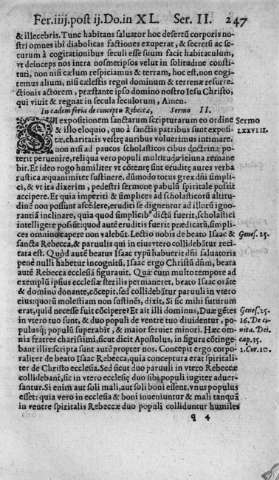 Fer.iiij.post ij.Do.in XL. Ser. II. 247
& illecebris. Tunc habitans saluator hoc desertũ corporis no-
stri omnes ibi diabolicas factiones exuperat, & secreti ac se-
curum à cogitationibus seculi esse suum facit habitaculum,
vt deinceps nos intra nosmetipsos velut in solitudine consti-
tuti, non nisi cælum respiciamus & terram, hoc est, non cogi-
temus alium, nisi cælestis regni dominum & terrenæ resurre-
ctionis actorem, præstante ipso domino nostro Iesu Christo,
qui viuit & regnat in secula seculorum, Amen.
In eadem feria de conceptu Rebeccæ, Sermo II.
SI expositionem sanctarum scripturarum eo ordine
& illo eloquio, quo à sanctis patribus sunt exposi-
tæ, charitatis vestræ auribus voluerimus intimare,
non nisi ad paucos scholasticos cibus doctrinæ po-
terit peruenire, reliqua vero populi multitudo ieiuna remane
bit. Et ideo rogo humiliter vt cõtentę sint eruditę aures verba
rustica æquanimiter sustinere, dũmodo totus grex dñi simpli-
ci, & vt ita dixerim, pedestri sermone pabula spiritalia possit
accipere. Et quia imperiti & simplices ad scholasticorũ altitu-
dinẽ non possunt ascẽdere, eruditi se dignentur ad illorũ igno-
rantiã inclinare, quia quod simplicibꝰ dictũ fuerit, scholastici
intelligere possũt: quod autẽ eruditis fuerit prędicatũ, simpli-
ces omnino capere non valebũt. Lectio nobis de beato Isaac &
sancta Rebecca, & paruulis qui in eius vtero collidebãtur reci-
tata est. Quòd autẽ beatus Isaac typũ habuerit dñi saluatoris
penè nulli habetur incognitũ. Isaac ergo Christũ dñm, beata
autẽ Rebecca ecclesiã figurauit. Quæ cum multo tempore ad
exemplũ ipsius ecclesiæ sterilis permaneret, beato Isaac orãte
& domino donante, cõcepit, sed collidebãtur paruuli in vtero
eius: quorũ molestiam non sustinẽs, dixit, Si sic mihi futurum
erat, quid necesse fuit cõcipere? Et ait illi dominus, Duæ gẽtes
in vtero tuo sunt, & duo populi de ventre tuo diuidentur, po-
pulusq; populũ superabit, & maior seruiet minori. Hæc om-
nia fratres charissimi, sicut dicit Apostolus, in figura cõtinge-
bant illis: scripta sunt autẽ propter nos. Concepit ergo corpo-
raliter de beato Isaac Rebecca, quia conceptura erat spiritali-
ter de Christo ecclesia. Sed sicut duo paruuli in vtero Rebeccæ
collidebant, sic in vtero ecclesię duo sibi populi iugiter aduer-
santur. Si enim aut soli mali, aut soli boni essent, vnus populus
esset: quia vero in ecclesia & boni inueniuntur & mali tanquã
in ventre spiritalis Rebeccæ duo populi colliduntur humiles
q 4
Sermo
LXXVIII.
Genes.25.
Genes.25.
16. De ci-
uita. Dei.
cap.35.
1.Cor.10.